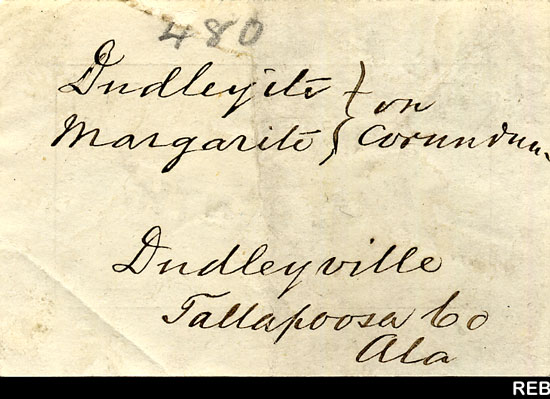 480
Dudleyite } on
Margarite } Corundum
Dudleyville
Tallapoosa Co
Ala
REB